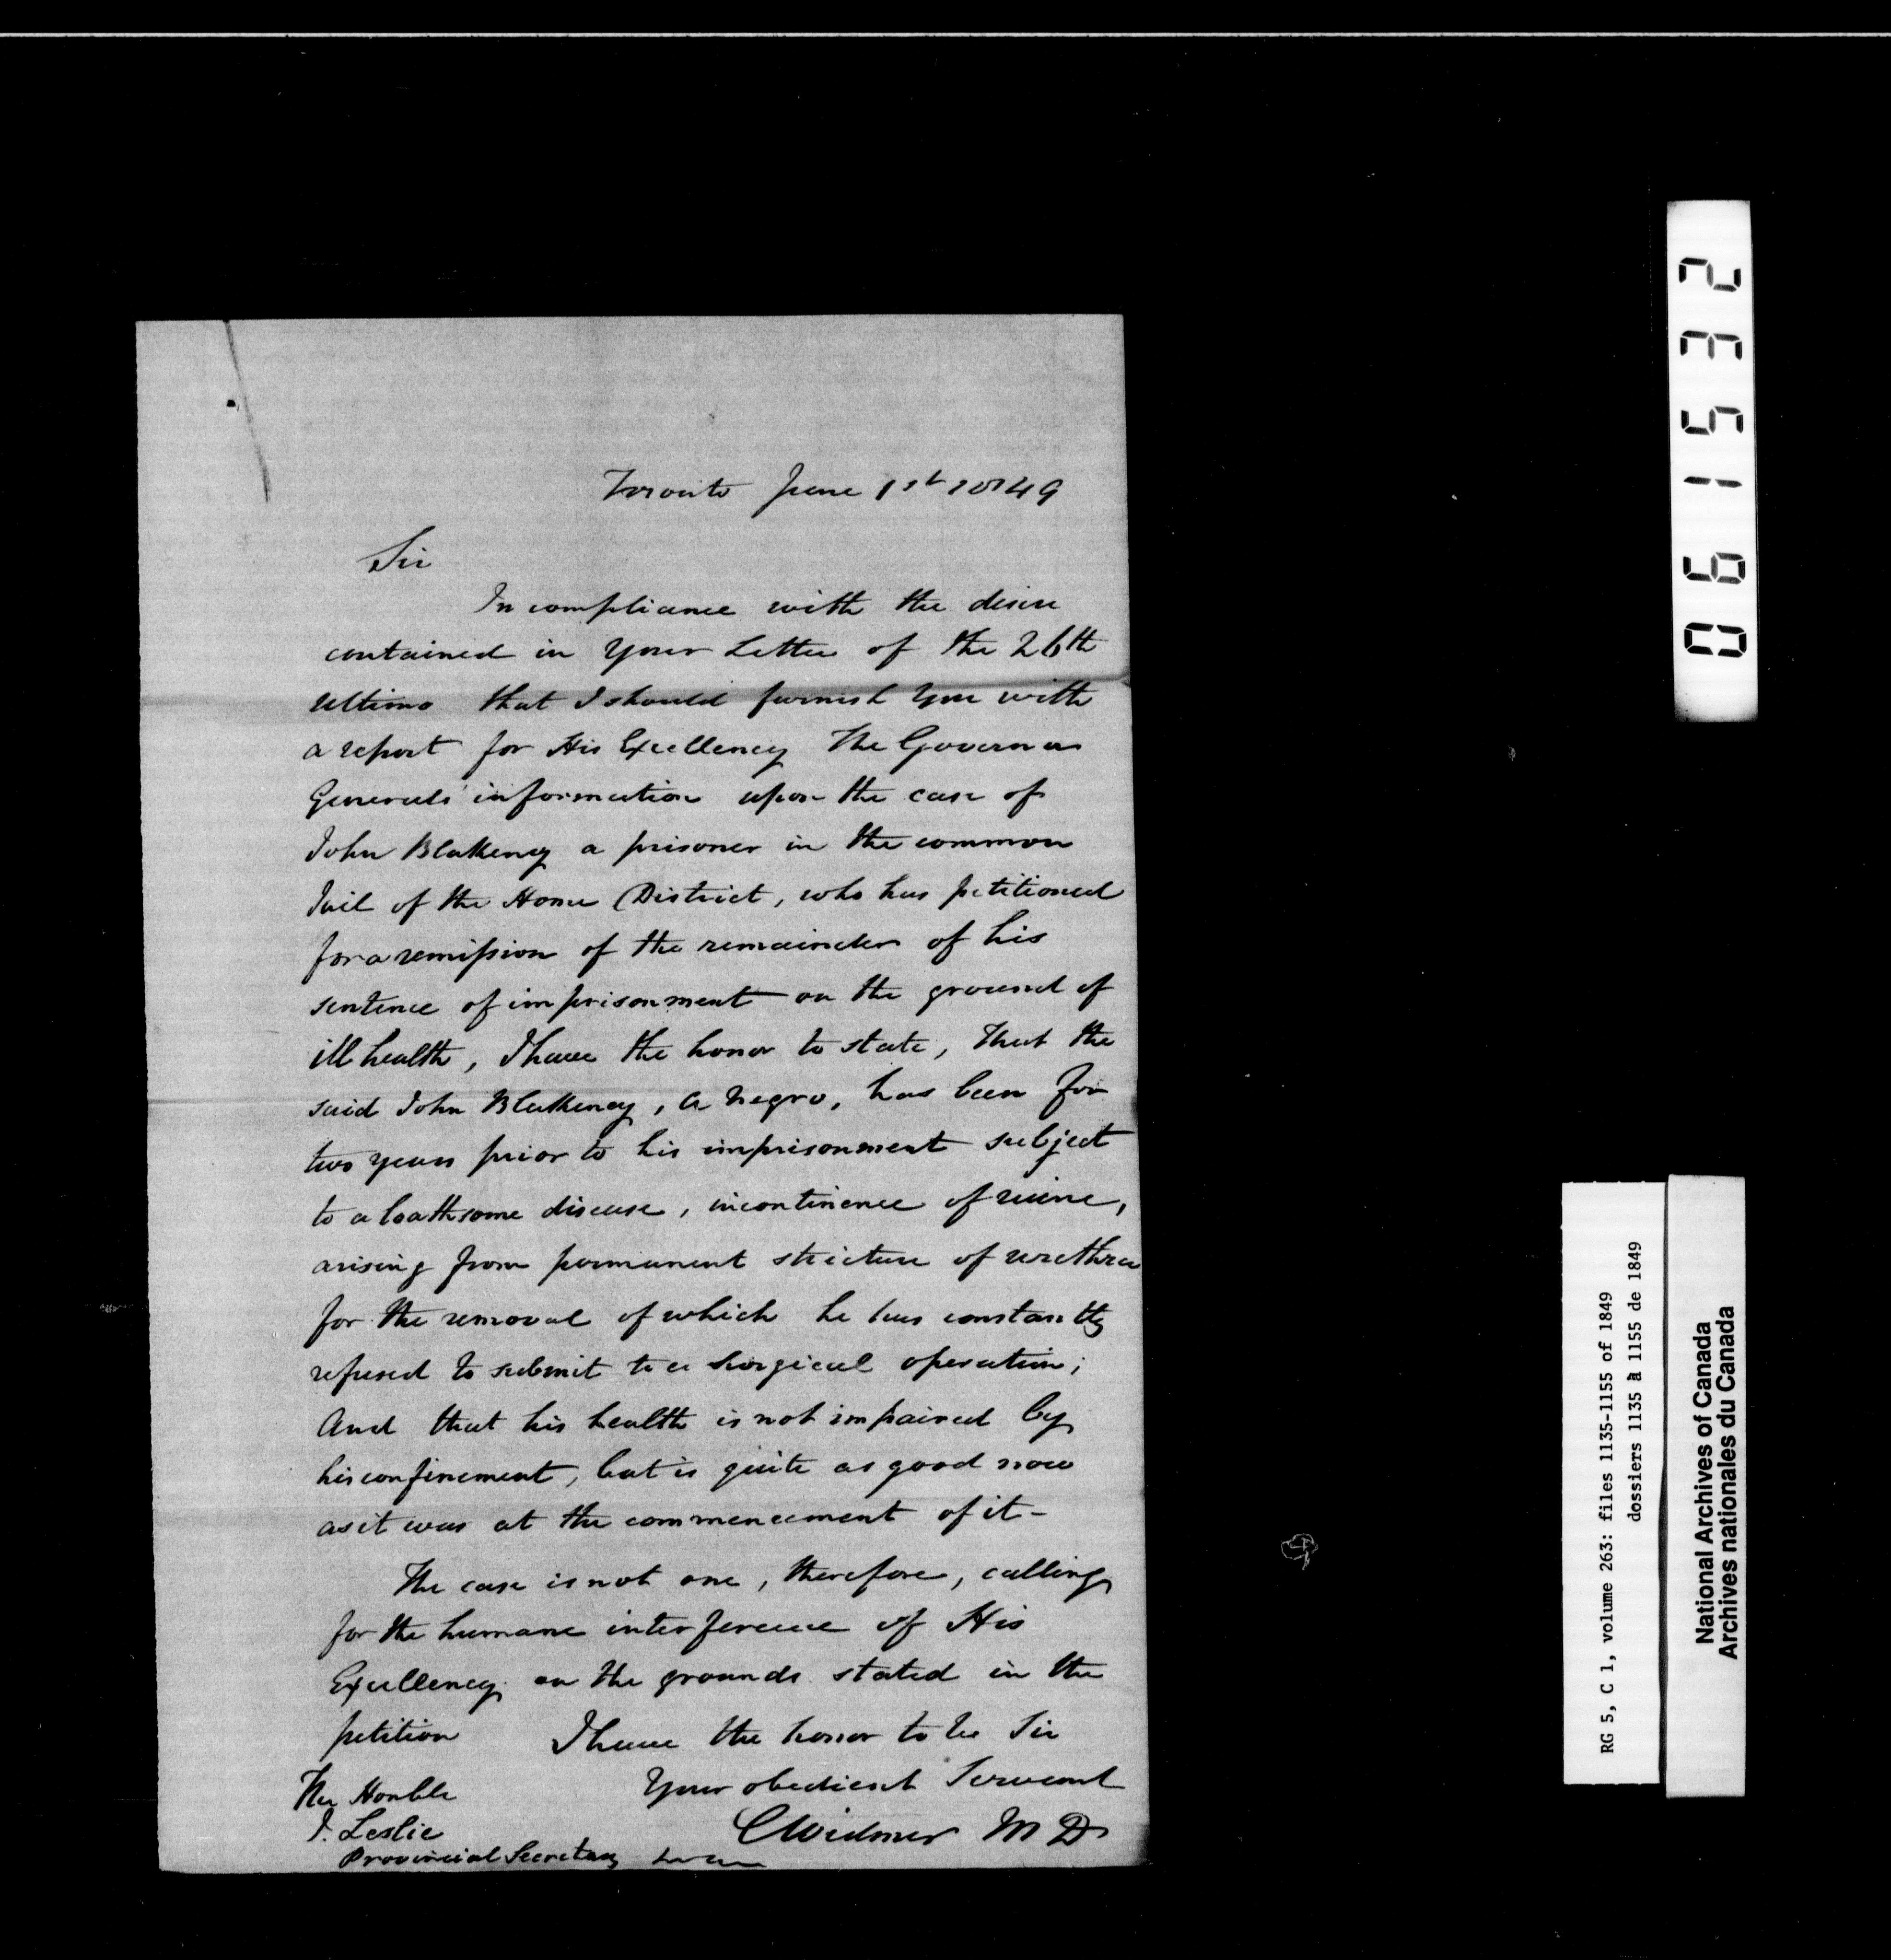 Toronto June 1st 1849
Sir
In compliance with the desire
contained in your Letter of the 26th
Ultimo that I should furnish you with
a report for His Excellency The Governor
Generals' information upon the case of
John Blakeney a prisoner in the common
Jail of the Home District, who has petitioned
for a remission of the remainder of his
sentence of imprisonment on the ground of
ill health, I have the honor to state, that the
said John Blakeney, a Negro, has been for
two years prior to his imprisonment subject
to a loathsome disease, incontinence of urine,
arising from permanent stricture of urethra
for the removal of which he has constantly
refused to submit to a surgical operation;
And that his health is not impaired by
his confinement, but is quite as good now
as it was at the commencement of it-
The case is not one, therefore, calling
for the humane interference of His
Excellency on the grounds stated in the
petition I have the honor to be Sir
Your obedient Servant
The Honble
J. Leslie
CWidmer M D
Provincial Secretary
061532
RG 5, C 1, volume 263: files 1135-1155 of 1849
dossiers 1135 à 1155 de 1849
National Archives of Canada
Archives nationales du Canada